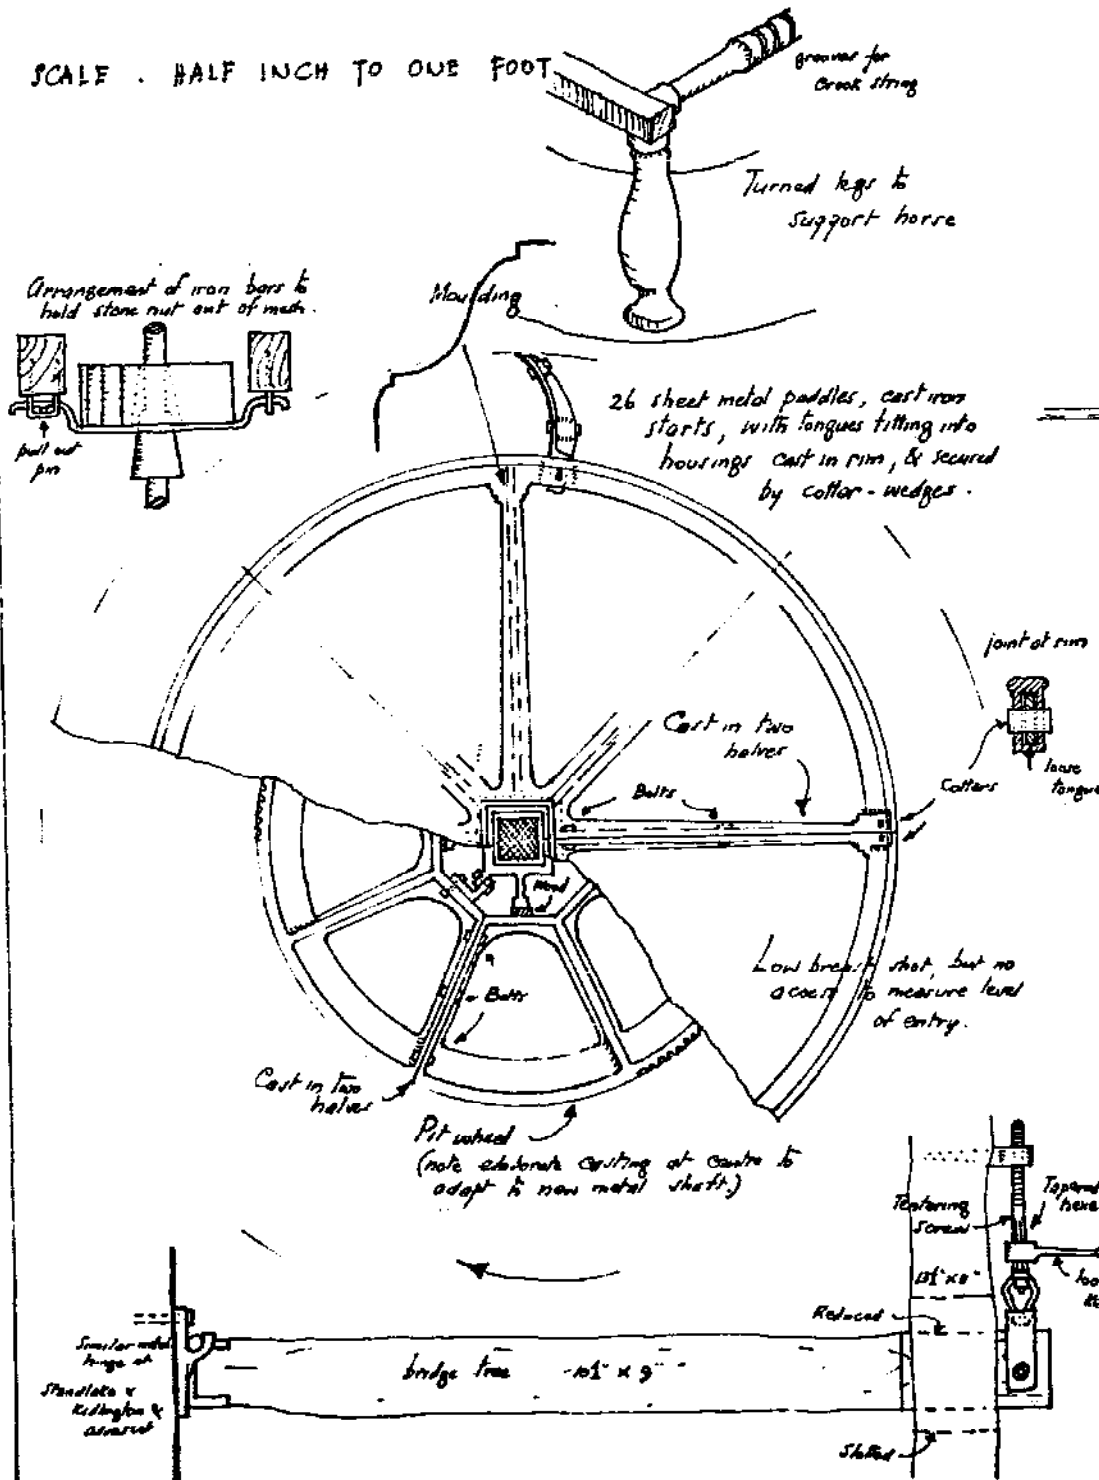 SCALE . HALF INCH TO ONE FOOT
grooves for
Crook string
Turned legs to
support horse
Arrangement of iron bars to
hold stone nut out of mesh.
Moulding
pull out
pin
26 sheet metal paddles, cast iron
starts, with tongues fitting into
housings cast in rim, & secured
by cotter-wedges.
joint at rim
loose
tongue
Cotters
Cast in two
halves
Bolts
Wood
Low breast shot, but no
access to measure level
of entry.
Bolts
Cast in two
halves
Pit wheel
(note elaborate casting at centre to
adapt to new metal shaft.)
Tentering
screw
Tapered
Reduced
Similar metal
hinge at
Standlake &
Kidlington &
bridge tree 10½" x 9"
Slotted